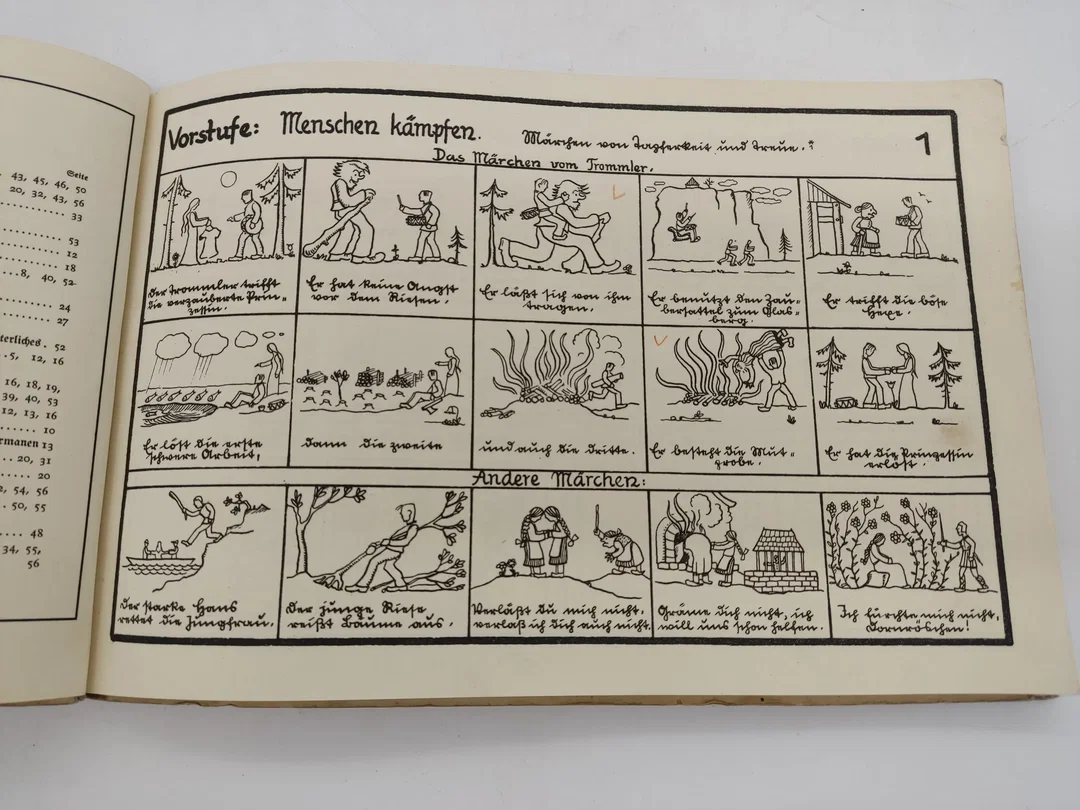 Seite
43, 45, 46, 50
20, 32, 43, 56
33
53
12
18
8, 40, 52
24
27
terliches. 52
5, 12, 16
16, 18, 19,
39, 40, 53
12, 13, 16
10
ermanen 13
20, 31
20
54, 56
50, 55
48
34, 55,
56
Vorstufe: Menschen kämpfen. Märchen von Tapferkeit und Treue. 1
Das Märchen vom Trommler.
Der Trommler trifft
die verzauberte Prin-
zessin.
Er hat keine Angst
vor dem Riesen.
Er läßt sich von ihm
tragen.
Er benutzt den Zau-
bersattel zum Glas-
berg.
Er trifft die böse
Hexe.
Er löst die erste
schwere Arbeit,
dann die zweite
und auch die dritte.
Er besteht die Mut-
probe.
Er hat die Prinzessin
erlöst.
Andere Märchen:
Der starke Hans
rettet die Jungfrau.
Der junge Riese
reißt Bäume aus.
Verläßt du mich nicht,
verlaß ich dich auch nicht.
Gräme dich nicht, ich
will uns schon helfen.
Ich fürchte mich nicht,
Dornröschen!